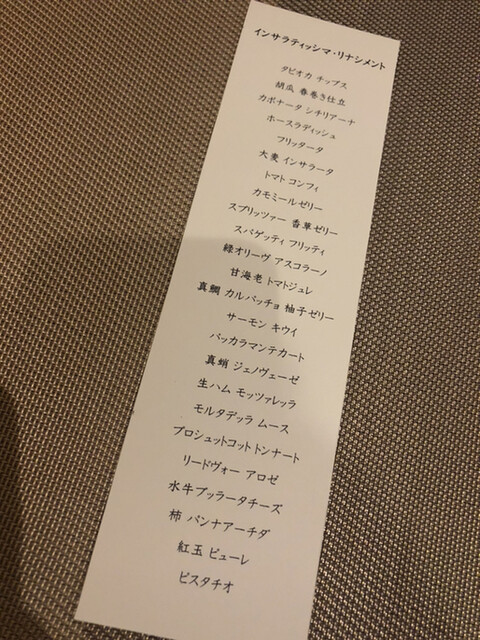 インサラティッシマ・リナシメント
タピオカ チップス
胡瓜 春巻き仕立
カポナータ シチリアーナ
ホースラディッシュ
フリッタータ
大麦 インサラータ
トマト コンフィ
カモミールゼリー
スプリッツァー 香草ゼリー
スパゲッティ フリッティ
緑オリーヴ アスコラーノ
甘海老 トマトジュレ
真鯛 カルパッチョ 柚子ゼリー
サーモン キウイ
バッカラマンテカート
真蛸 ジェノヴェーゼ
生ハム モッツァレッラ
モルタデッラ ムース
プロシュットコット トンナート
リードヴォー アロゼ
水牛ブッラータチーズ
柿 パンナアーチダ
紅玉 ピューレ
ピスタチオ